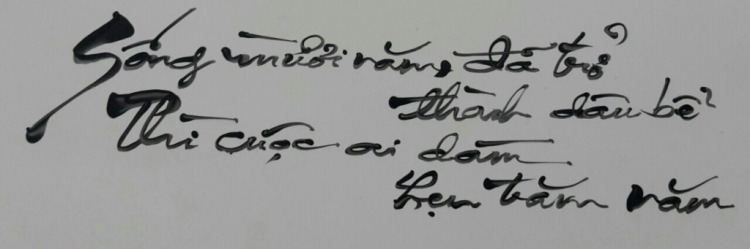 Sống mười năm, đã trở
thành dâu bể
Thì cuộc ai dám
hẹn trăm năm